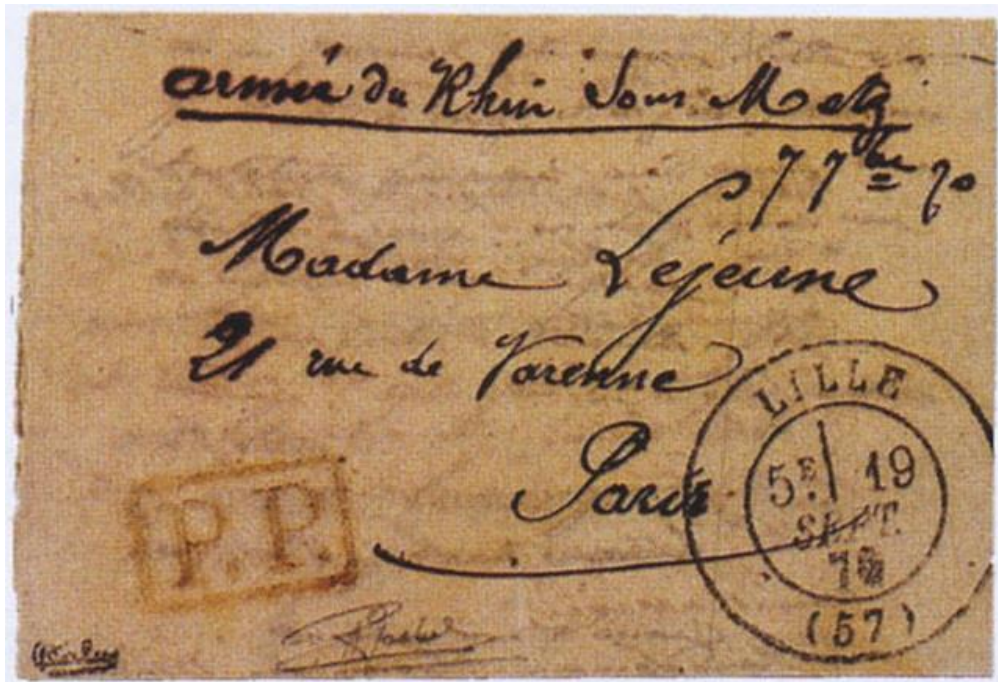 armée du Rhin sous Metz
7 7bre 70
Madame Lejeune
21 rue de Varenne
Paris
P.P.
LILLE
5E 19
SEPT.
70
(57)